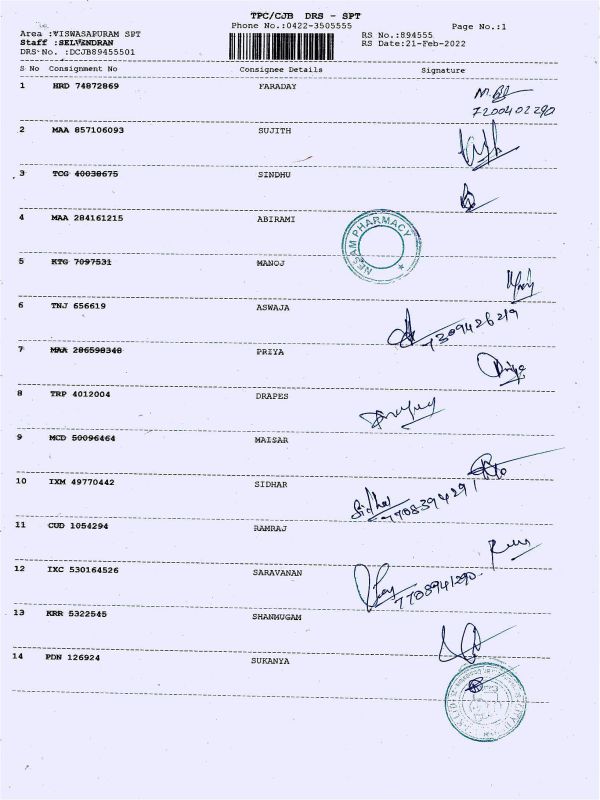 TPC/CJB DRS - SPT
Phone No.:0422-3505555
Page No.:1
Area :VISWASAPURAM SPT
RS No.:894555
Staff :SELVENDRAN
RS Date:21-Feb-2022
DRS No. :DCJB89455501
S No Consignment No Consignee Details Signature
1 HRD 74872869 FARADAY
7200402290
2 MAA 857106093 SUJITH
3 TCG 40038675 SINDHU
4 MAA 284161215 ABIRAMI
NESAM PHARMACY
5 KTG 7097531 MANOJ
6 TNJ 656619 ASWAJA
7309426219
7 MAA 286598348 PRIYA
Priya
8 TRP 4012004 DRAPES
9 MCD 50096464 MAISAR
10 IXM 49770442 SIDHAR
Sidhar
7708394291
11 CUD 1054294 RAMRAJ
12 IXC 530164526 SARAVANAN
7708941290
13 KRR 5322545 SHANMUGAM
14 PDN 126924 SUKANYA